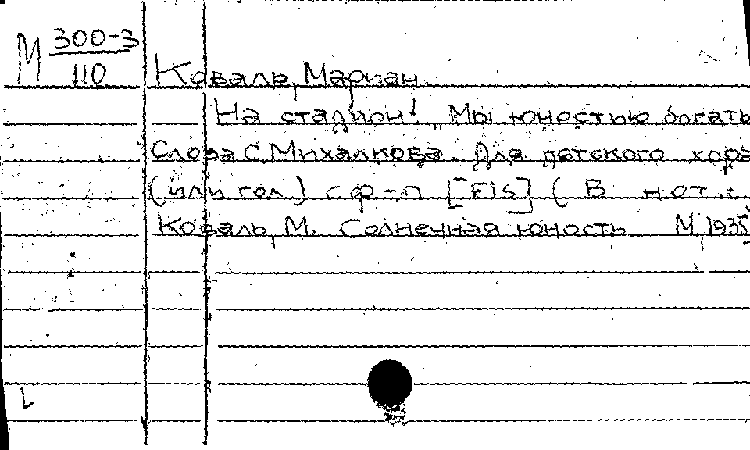 М 300-3
110
Коваль, Мариан
На стадион! Мы юностью богаты
Слова С. Михалкова. Для детского хора
(или гол.) с ф-п [Fis] (В нот.:
Коваль, М. Солнечная юность М, 1935